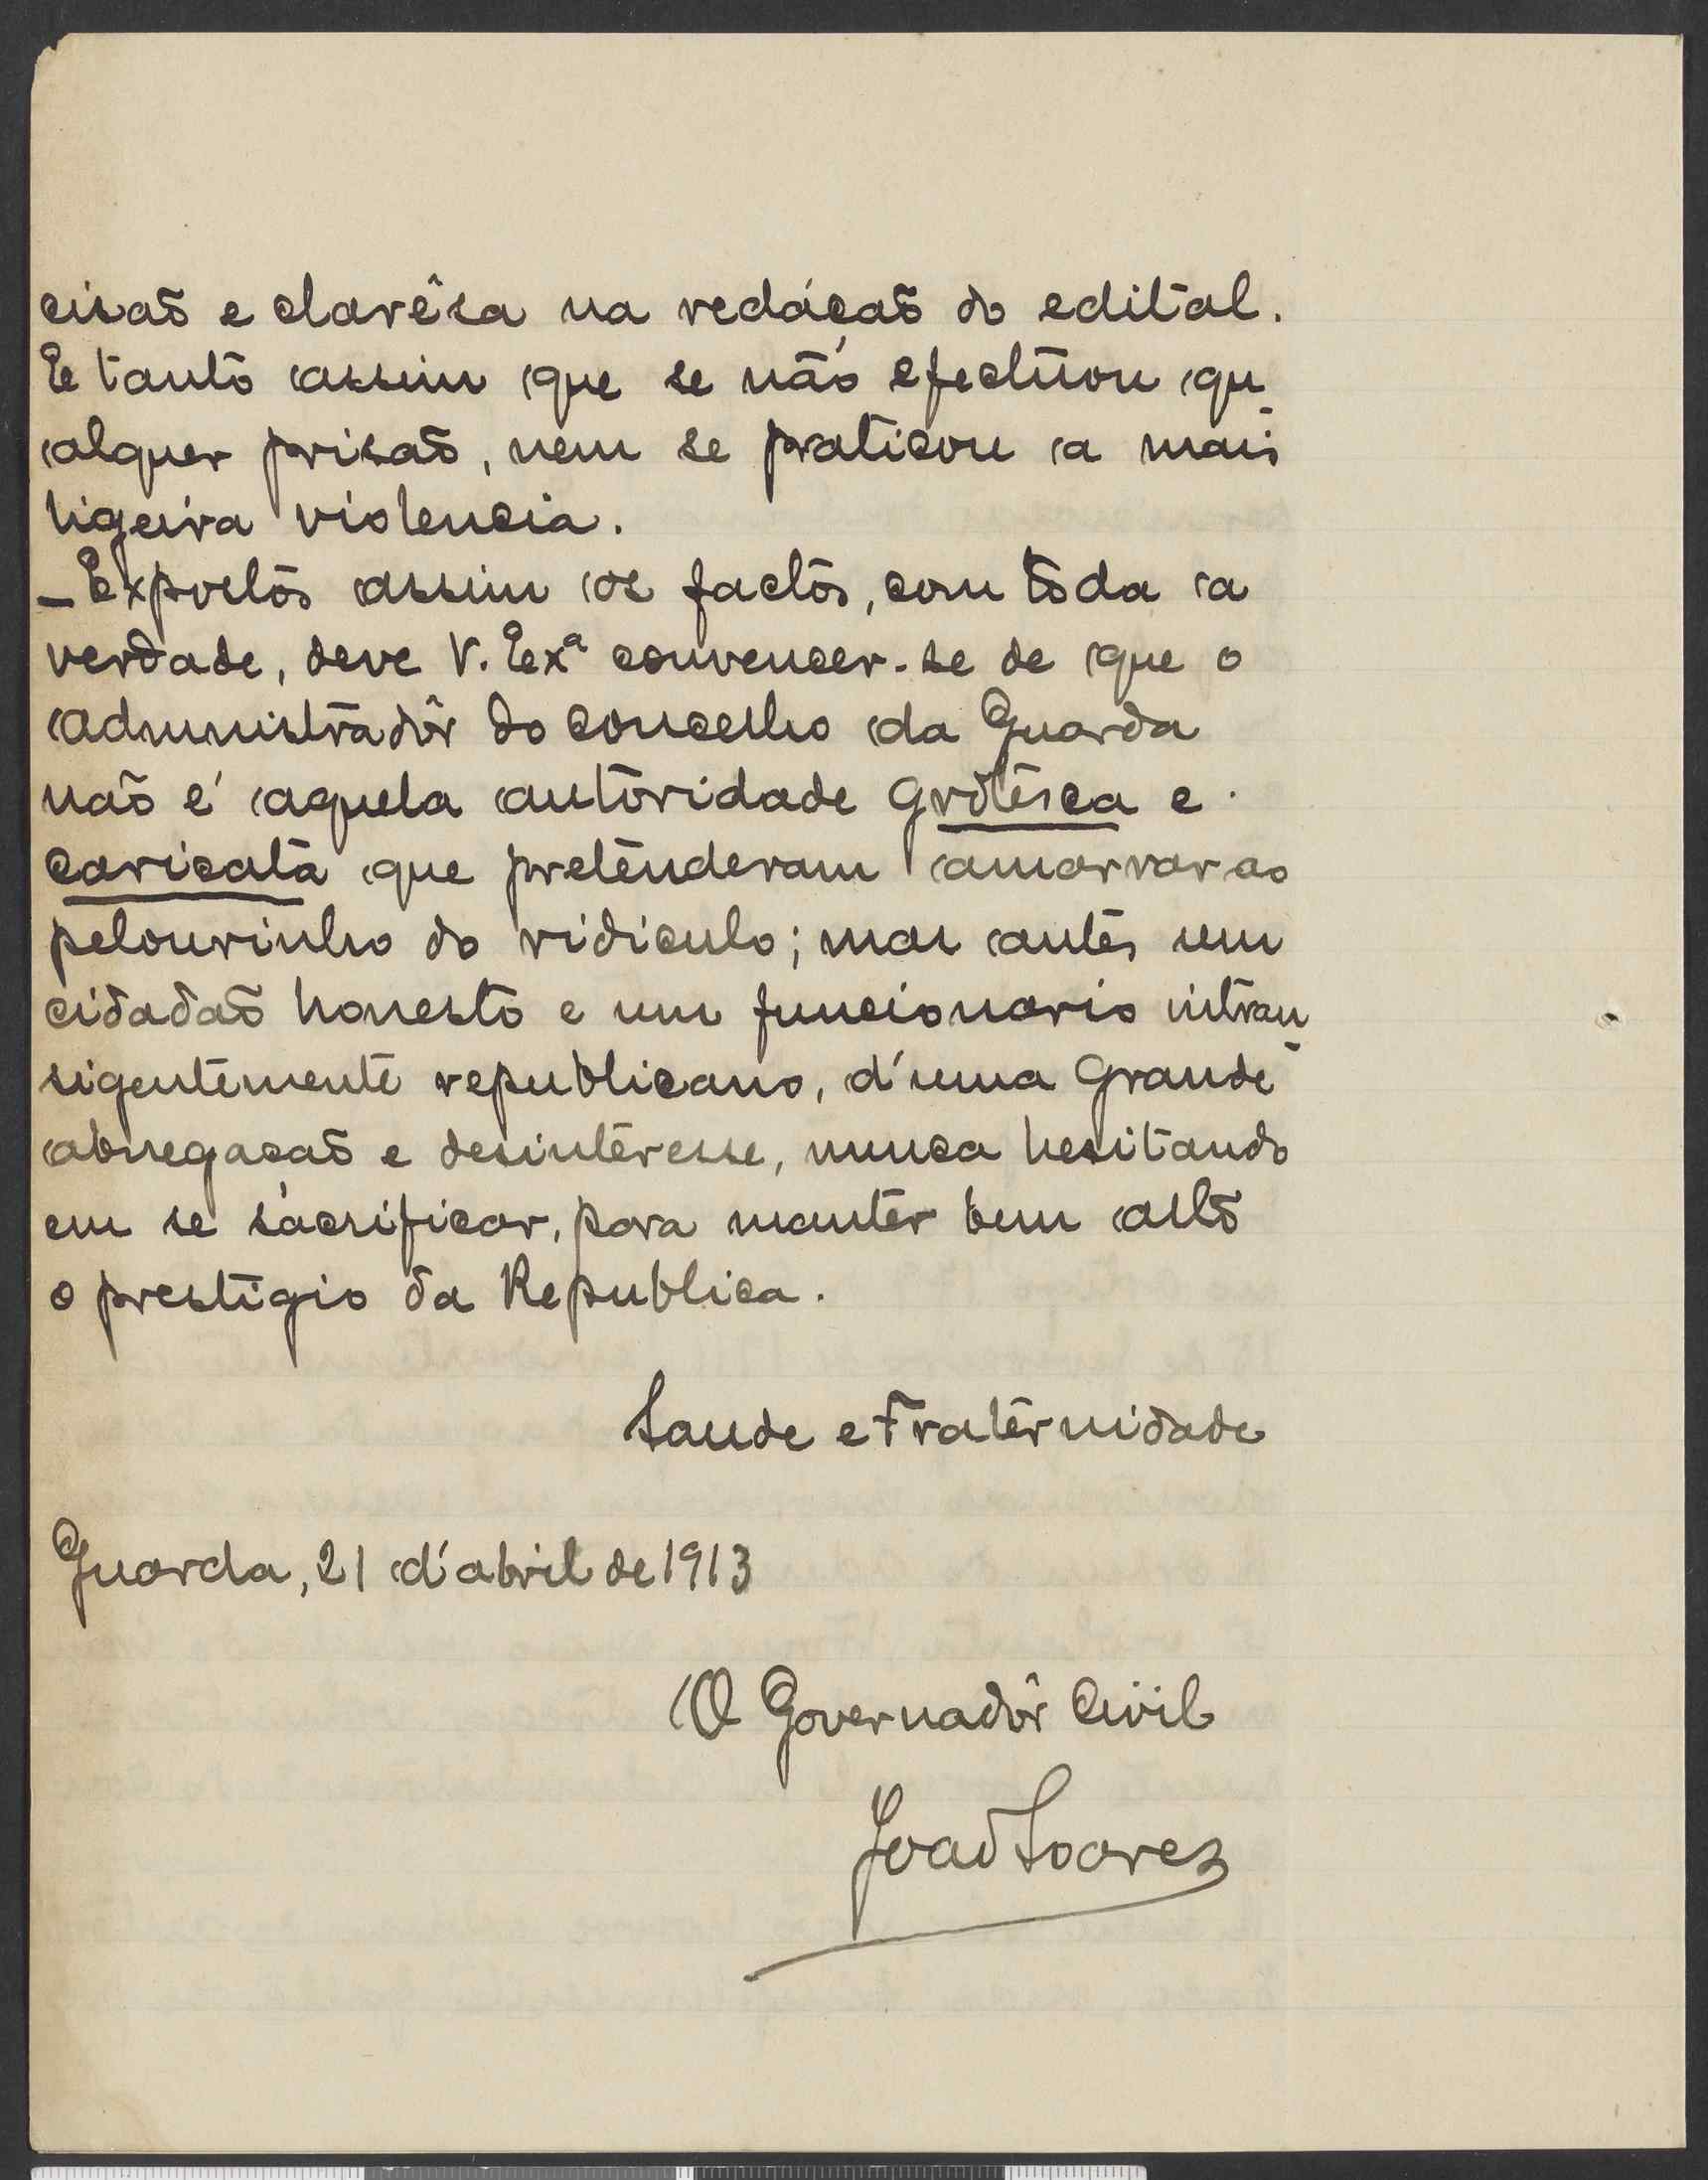 cisaõ e clarêsa na redáçaõ do edital.
E tanto assim que se não efectuou qu-
alquer prisaõ, nem se praticou a mais
ligeira violencia.
- Expostos assim os factos, com tôda a
verdade, deve V. Exª convencer-se de que o
administradôr do concelho da Guarda
naõ é aquela autoridade grotêsca e
caricata que pretenderam amarrar ao
pelourinho do ridiculo; mas antes um
cidadaõ honesto e um funcionario intran-
sigentemente republicano, d'uma grande
abnegaçaõ e desinteresse, nunca hesitando
em se sacrificar, para manter bem alto
o prestigio da Republica.
Saude e Fraternidade
Guarda, 21 d'abril de 1913
O Governadôr Civil
Joaõ Soares